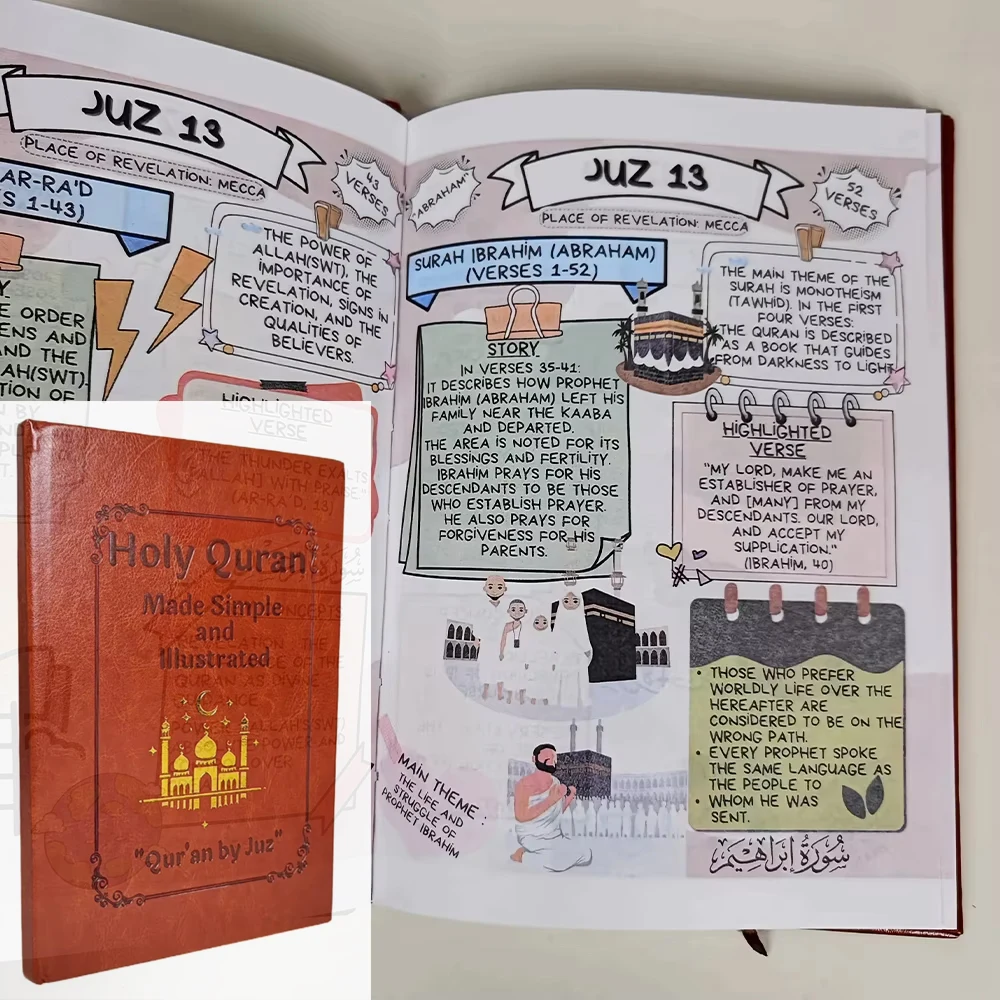 JUZ 13
PLACE OF REVELATION: MECCA
43
VERSES
AR-RA'D
S 1-43)
THE POWER OF
ALLAH(SWT), THE
IMPORTANCE OF
REVELATION, SIGNS IN
CREATION, AND THE
QUALITIES OF
BELIEVERS.
Y
E ORDER
ENS AND
AND THE
AH(SWT).
TION OF
N BY
HIGHLIGHTED
VERSE
"THE THUNDER EXALTS
[ALLAH] WITH PRAISE"
(AR-RA'D, 13)
Holy Quran
Made Simple
and
Illustrated
"Qur'an by Juz"
"ABRAHAM"
JUZ 13
PLACE OF REVELATION: MECCA
52
VERSES
SURAH IBRAHİM (ABRAHAM)
(VERSES 1-52)
STORY
IN VERSES 35-41:
IT DESCRIBES HOW PROPHET
IBRAHIM (ABRAHAM) LEFT HIS
FAMILY NEAR THE KAABA
AND DEPARTED.
THE AREA IS NOTED FOR ITS
BLESSINGS AND FERTILITY.
IBRAHIM PRAYS FOR HIS
DESCENDANTS TO BE THOSE
WHO ESTABLISH PRAYER.
HE ALSO PRAYS FOR
FORGIVENESS FOR HIS
PARENTS.
THE MAIN THEME OF THE
SURAH IS MONOTHEISM
(TAWHID). IN THE FIRST
FOUR VERSES:
THE QURAN IS DESCRIBED
AS A BOOK THAT GUIDES
FROM DARKNESS TO LIGHT.
HIGHLIGHTED
VERSE
"MY LORD, MAKE ME AN
ESTABLISHER OF PRAYER,
AND [MANY] FROM MY
DESCENDANTS. OUR LORD,
AND ACCEPT MY
SUPPLICATION."
(IBRAHIM, 40)
• THOSE WHO PREFER
WORLDLY LIFE OVER THE
HEREAFTER ARE
CONSIDERED TO BE ON THE
WRONG PATH.
• EVERY PROPHET SPOKE
THE SAME LANGUAGE AS
THE PEOPLE TO
• WHOM HE WAS
SENT.
MAIN THEME :
THE LIFE AND
STRUGGLE OF
PROPHET IBRAHIM
سُورَةُ إِبْرَاهِيمَ